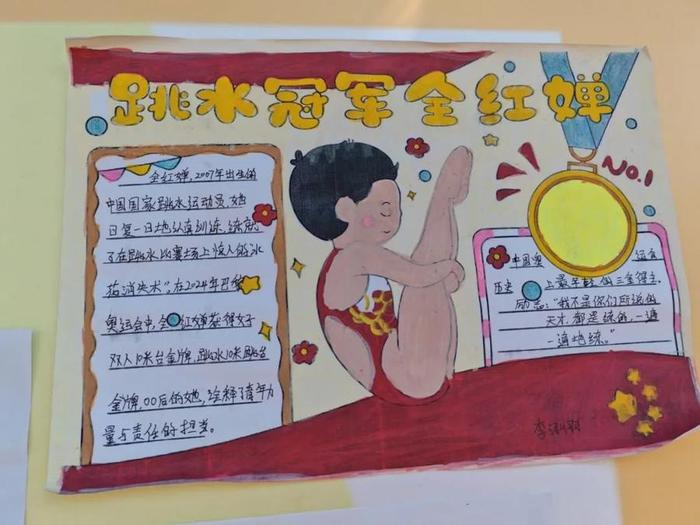 跳水冠军全红婵
NO.1
全红婵,2007年出生的
中国国家跳水运动员,她
日复一日地认真训练,练就
了在跳水比赛场上惊人的“水
花消失术”,在2024年巴黎
奥运会中,全红婵获得女子
双人10米台金牌,跳水10米跳台
金牌,00后的她,诠释了青年力
量与责任的担当。
中国奥 运会
历史 上最年轻的三金得主.
励志:“我不是你们所说的
天才,都是练的,一遍
一遍地练。”
李